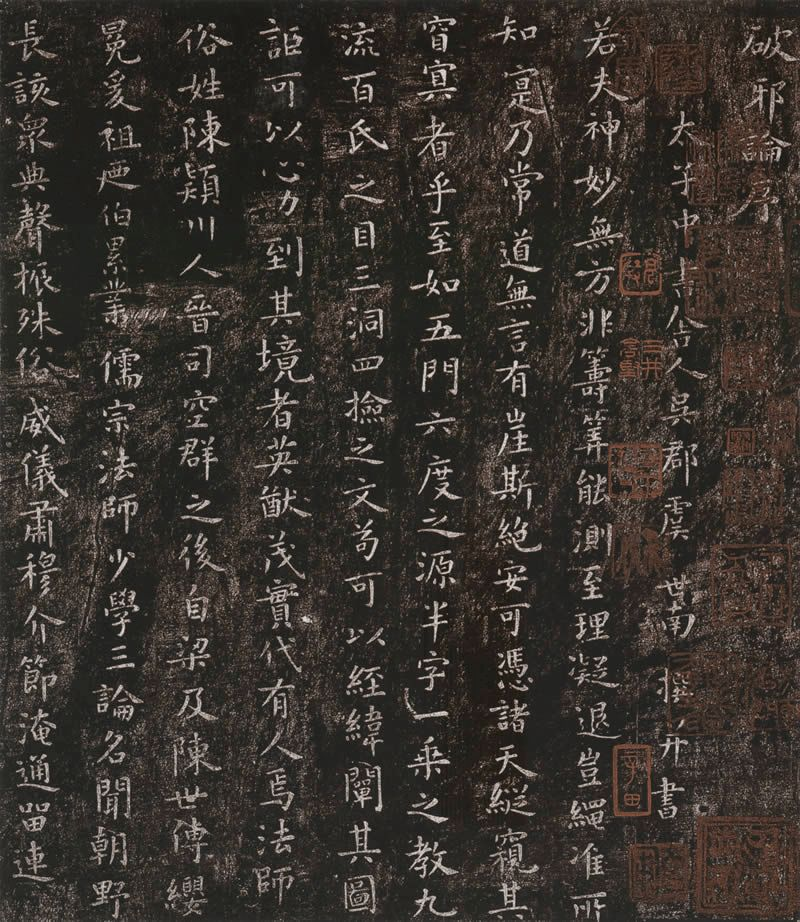 破邪論序
太子中書舍人吳郡虞世南撰并書
若夫神妙無方非籌筭能測至理凝退豈繩准所
知寔乃常道無言有崖斯絕安可憑諸天縱窺其
窅冥者乎至如五門六度之源半字一乘之教九
流百氏之目三洞四撿之文苟可以經緯闡其圖
詎可以心力到其境者英猷茂實代有人焉法師
俗姓陳潁川人晉司空群之後自梁及陳世傳纓
冕爰祖迊伯累業儒宗法師少學三論名聞朝野
長該眾典聲振殊俗威儀肅穆介節淹通留連